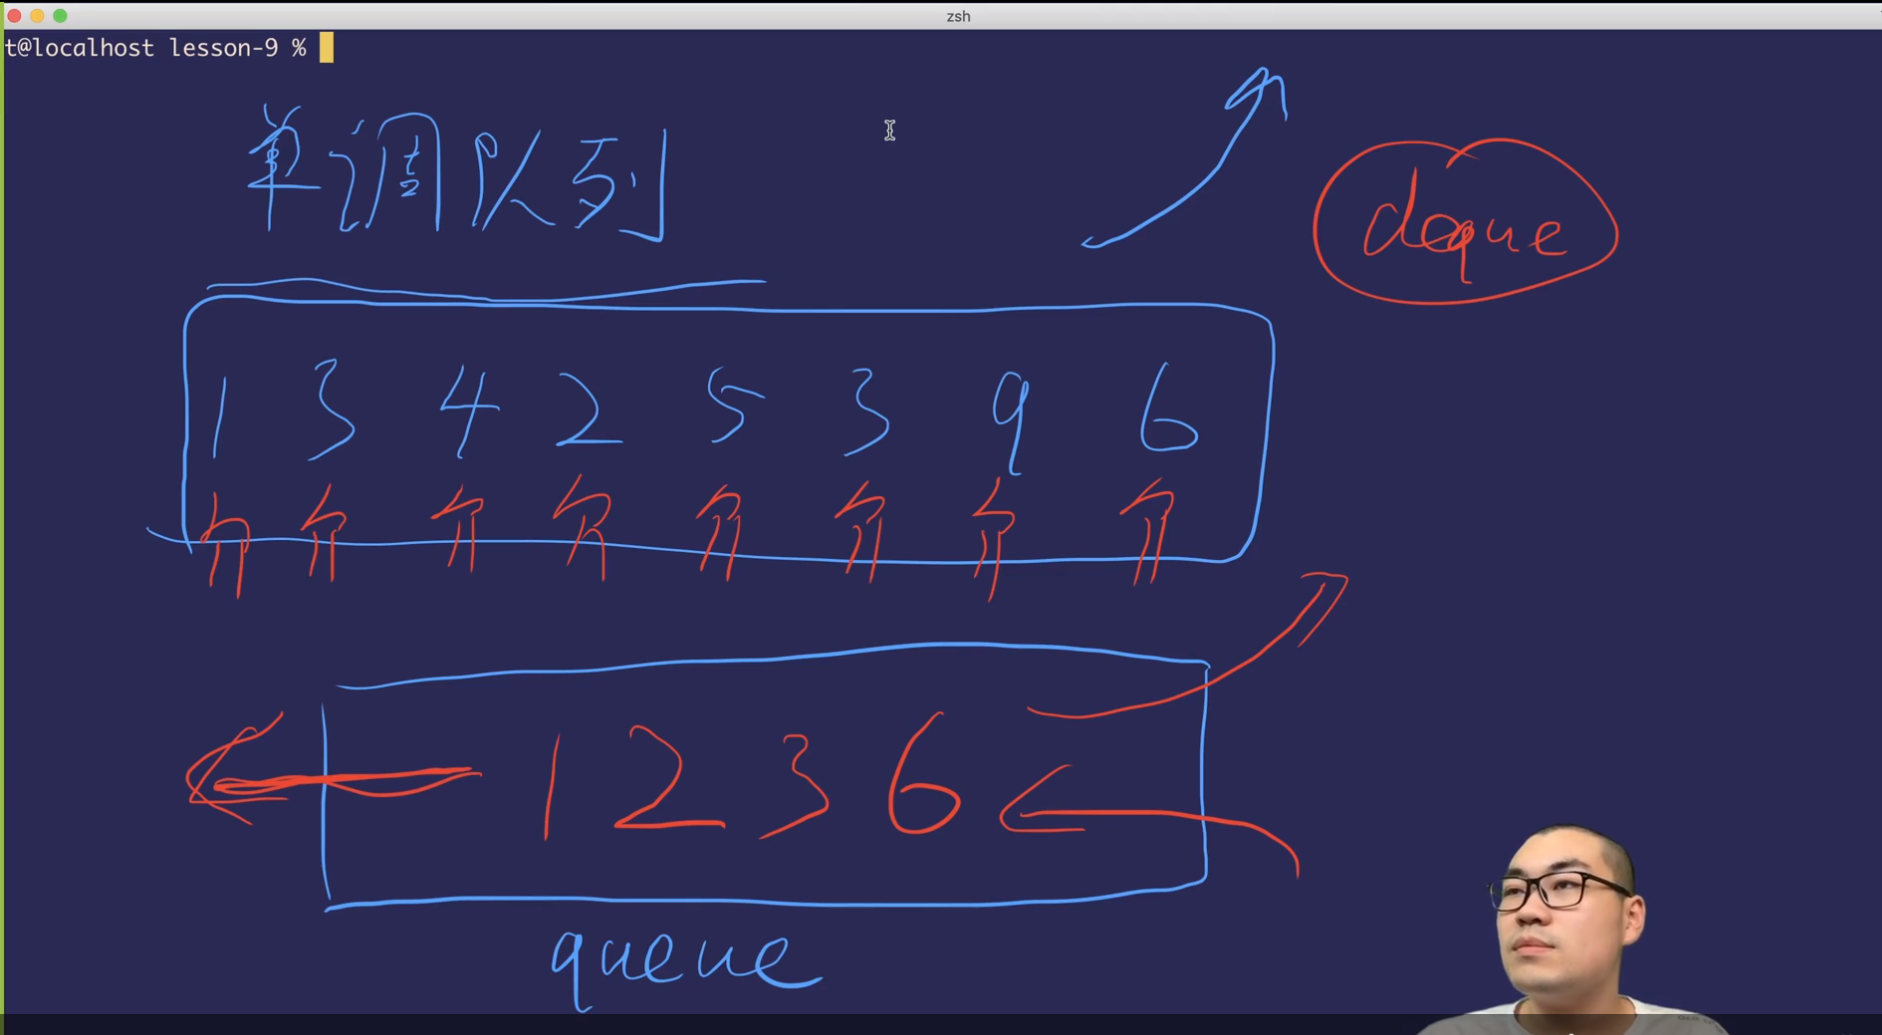 zsh
t@localhost lesson-9 %
单调队列
deque
1 3 4 2 5 3 9 6
1 2 3 6
queue